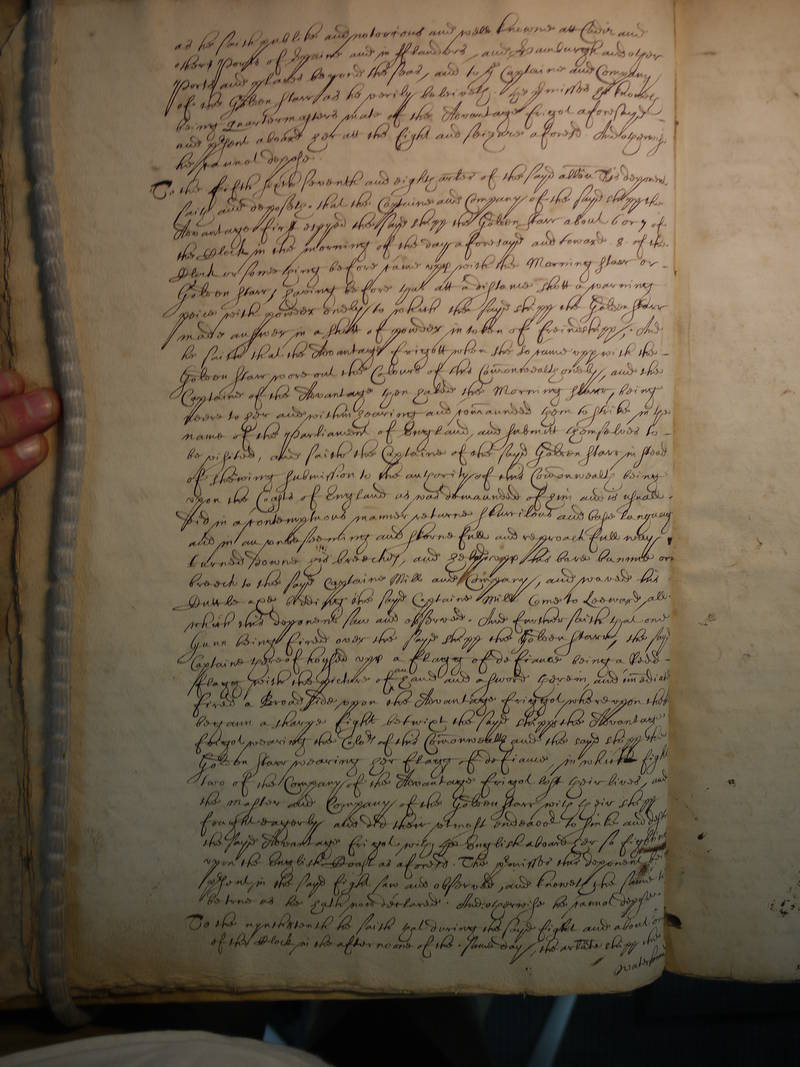 as he saith publike and notorious and well knowne att Cadiz and
other Ports of Spaine and in fflanders, and Hamburgh and other
Ports and places beyond the seas, and to the Captaine and Company
of the Golden Starr as he verily beleiveth. The premisses he knoweth
being Quartermasters mate of the Advantage frigot aforesayd
and present aboard her att the fight and seizure aforesd. And otherwise
he cannot depose.
To the fifth sixth seventh and eight articles of the sayd allon this deponent
saith and deposeth that the Captaine and Company of the sayd shipp the
Advantage first espyed the sayd shipp the Golden Starr about 6 or 7 of
the Clock in the morning of the day aforesayd and toward 8 of the
Clock or something before came upp with the Morning Starr or
Golden Starr, having before that att a distance shott a warning
peice with powder onely, to which the sayd shipp the Golden Starr
made answer in a shott of powder in token of freindshipp, And
he saith that the Advantage frigott when shee so came upp with the
Golden Starr wore out the Colours of this Comonwealth onely, and the
Captaine of the Advantage then hailed the Morning Starr, being
neere to her and within hearing and comaunded them to strike in the
name of the Parliament of England, and submitt themselves to
be visited, and saith the Captaine of the sayd Golden Starr in steed
of shewing submission to the authority of this Comonwealth being
upon the Coasts of England as was demaunded of him and is usuall
did in a contemptuous manner returne scurrilous and base language
and in an unbeseeming and scorne full and reproach full way
turned downe his breeches, and held upp his bare bumme or
breech to the sayd Captaine Mill and Company, and waved his
Cuttle axe bidding the sayd Captaine Mill Come to Leeward, all
which this deponent saw and observed. And further saith that one
Gunn being fired over the sayd shipp the Golden Starr, the sayd
Captaine thereof hoysed upp a fflagg of defiance being a Redd
fflagg with the picture of a hand and a sword therein, and immediately
fired a Broad side upon the Advantage friggot whereupon there
begann a sharpe fight betwixt the sayd shipps the Advantage
frigot wearing the Colors of this Comonwealth and the sayd shipp the
Golden Starr wearing her fflagg of defiance, in which fight
two of the Company of the Advantage frigot lost their lives, and
the master and Company of the Golden Starr with their shipp
fought eagerly and did their utmost endeavor to sinke and
the sayd Advantage frigot with the English aboard her so fighting
upon the English Coast as aforesd. The premisses this deponent being
present in the sayd fight saw and observed, and knoweth the same to
be true as he hath now declared. And otherwise he cannot depose.
To the nynth he saith that during the sayd fight and about
of the Clock in the afternoone of the same day, the arlate shipp the